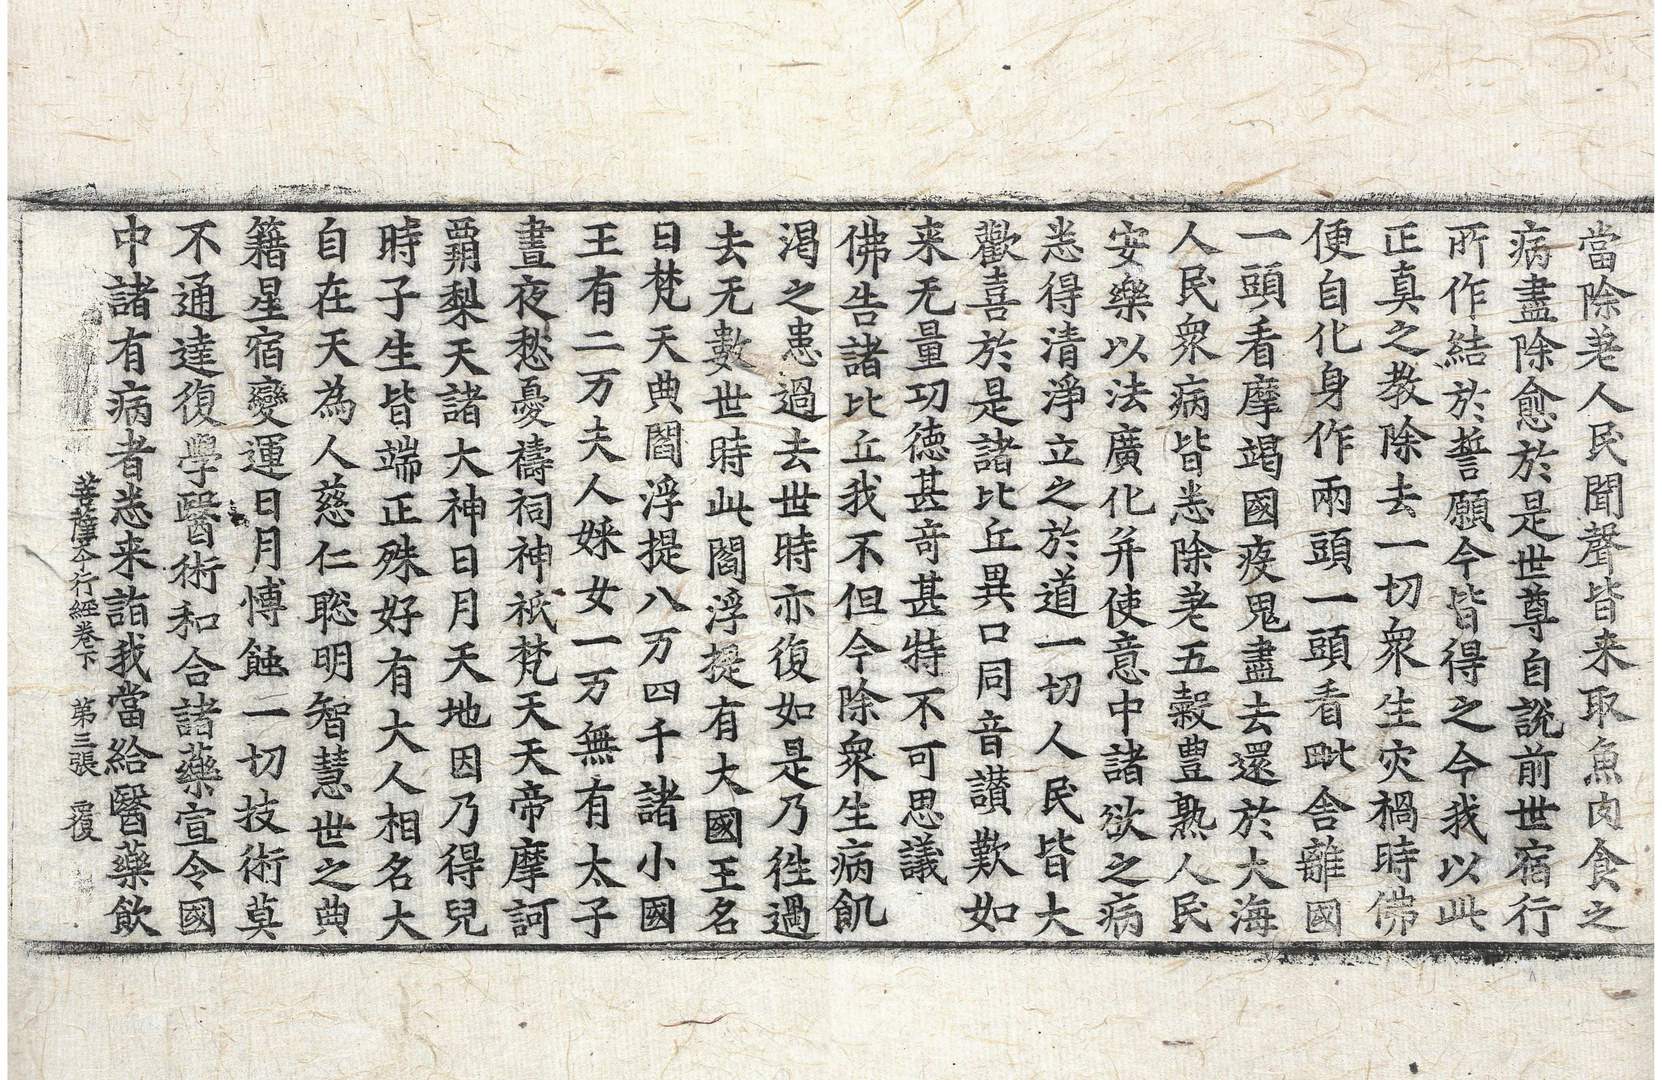 當除差人民聞聲皆来取魚肉食之
病盡除愈於是世尊自說前世宿行
所作結於誓願今皆得之今我以此
正真之教除去一切衆生灾禍時佛
便自化身作兩頭一頭看毗舍離國
一頭看摩竭國疫鬼盡去還於大海
人民衆病皆悉除差五穀豊熟人民
安樂以法廣化并使意中諸欲之病
悉得清淨立之於道一切人民皆大
歡喜於是諸比丘異口同音讃歎如
来无量功德甚奇甚特不可思議
佛告諸比丘我不但今除衆生病飢
渴之患過去世時亦復如是乃徃過
去无數世時此閻浮提有大國王名
曰梵天典閻浮提八万四千諸小國
王有二万夫人婇女一万無有太子
晝夜愁憂禱祠神祇梵天天帝摩訶
覇梨天諸大神日月天地因乃得兒
時子生皆端正殊好有大人相名大
自在天為人慈仁聡明智慧世之典
籍星宿變運日月愽蝕一切技術莫
不通達復學醫術和合諸藥宣令國
中諸有病者悉来詣我當給醫藥飲
菩薩夲行經卷下　第三張　覆